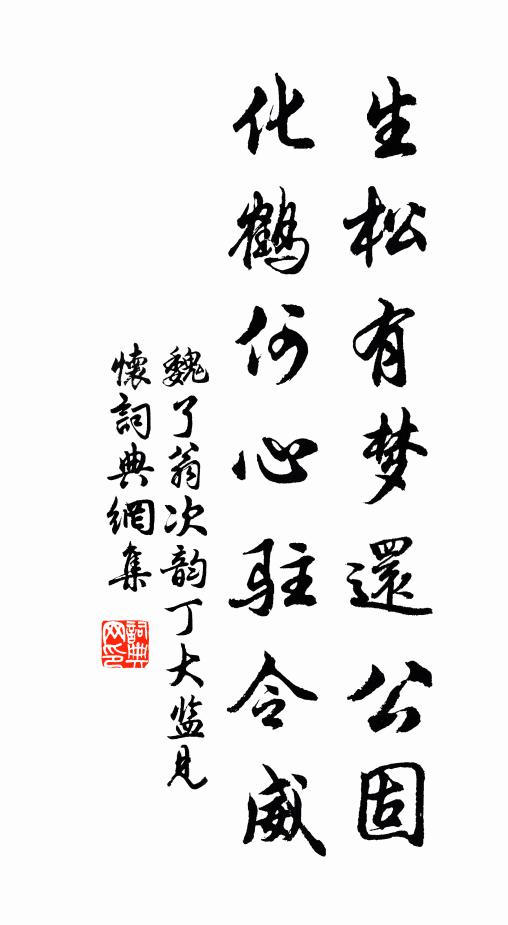 生松有梦還公固
化鶴何心駐令威
魏了翁次韵丁大监見
懷詞典網集
詞典
网印